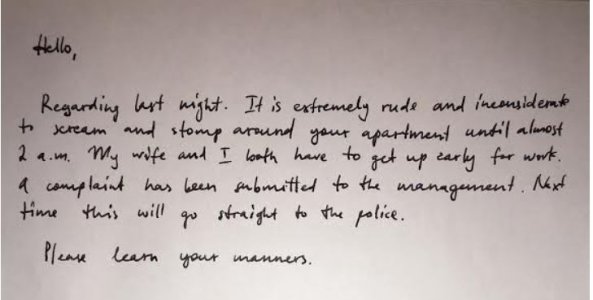 Hello,
Regarding last night. It is extremely rude and inconsiderate
to scream and stomp around your apartment until almost
2 a.m. My wife and I both have to get up early for work.
A complaint has been submitted to the management. Next
time this will go straight to the police.
Please learn your manners.